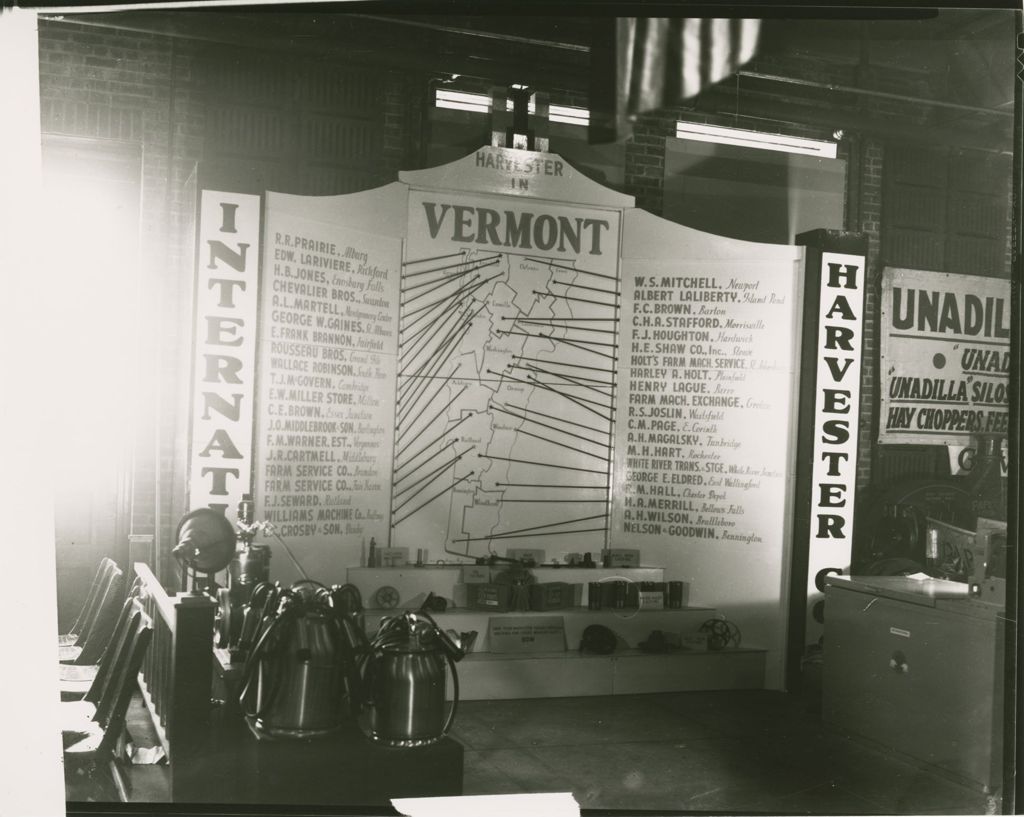 HARVESTER
IN
VERMONT
INTERNAT
R.R. PRAIRIE, Alburg
EDW. LARIVIERE, Richford
H.B. JONES, Enosburg Falls
CHEVALIER BROS., Swanton
A.L. MARTELL, Montgomery Center
GEORGE W. GAINES, St. Albans
E. FRANK BRANNON, Fairfield
ROUSSEAU BROS. Grand Isle
WALLACE ROBINSON, South Hero
T.J. McGOVERN, Cambridge
E.W. MILLER STORE, Milton
C.E. BROWN, Essex Junction
J.O. MIDDLEBROOK-SON, Burlington
F.M. WARNER, EST., Vergennes
J.R. CARTMELL, Middlebury
FARM SERVICE CO., Brandon
FARM SERVICE CO., Fair Haven
F.J. SEWARD, Rutland
WILLIAMS MACHINE Co.,
CROSBY & SON, Danby
Orleans
Essex
Lamoille
Washington
Addison
Orange
Rutland
Windsor
Bennington
Windham
W.S. MITCHELL, Newport
ALBERT LALIBERTY, Island Pond
F.C. BROWN, Barton
C.H.A. STAFFORD, Morrisville
F.J. HOUGHTON, Hardwick
H.E. SHAW CO., Inc., Stowe
HOLT'S FARM MACH. SERVICE, St. Johnsbury
HARLEY A. HOLT, Plainfield
HENRY LAGUE, Barre
FARM MACH. EXCHANGE, Groton
R.S. JOSLIN, Waitsfield
C.M. PAGE, E. Corinth
A.H. MAGALSKY, Tunbridge
M.H. HART, Rochester
WHITE RIVER TRANS. & STGE, White River Junction
GEORGE E. ELDRED, East Wallingford
R.M. HALL, Chester Depot
H.A. MERRILL, Bellows Falls
A.H. WILSON, Brattleboro
NELSON & GOODWIN, Bennington
HARVESTER C
UNADIL
"UNAD
"UNADILLA" SILOS
HAY CHOPPERS, FEE